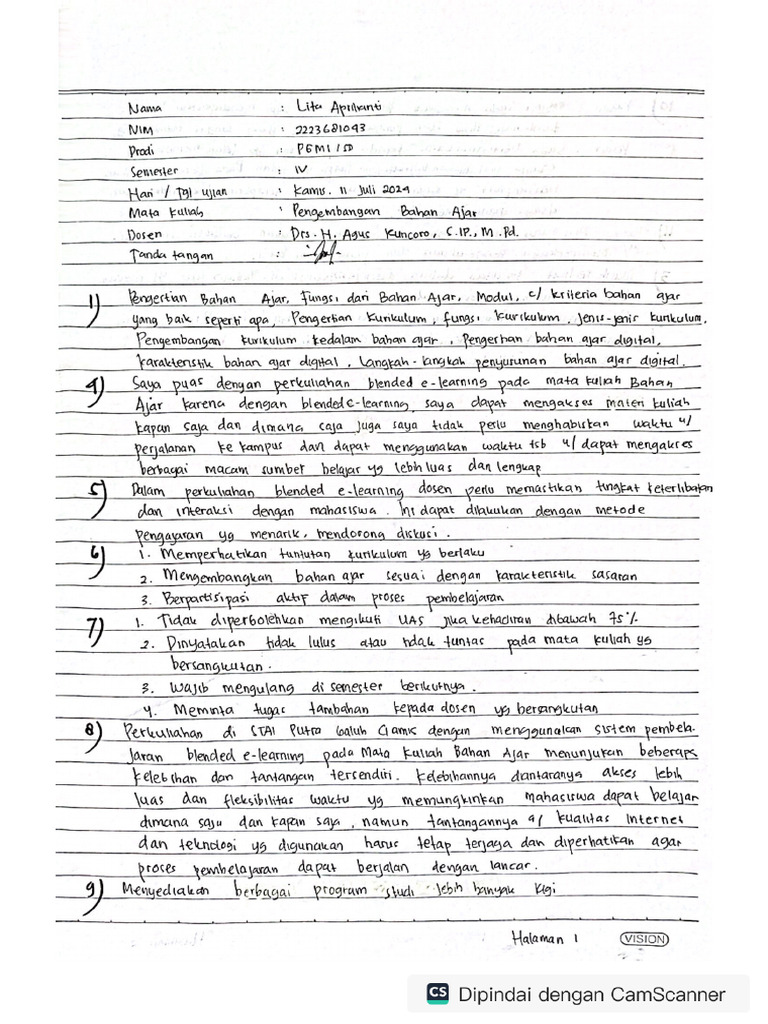 Nama : Lita Aprilianti
NIM : 2223681043
Prodi : PGMI / SD
Semester : IV
Hari / Tgl ujian : Kamis. 11 Juli 2024
Mata kuliah : Pengembangan Bahan Ajar
Dosen : Drs. H. Agus Kuncoro, S.IP., M.Pd.
Tanda tangan :
1) Pengertian Bahan Ajar, Fungsi dari Bahan Ajar, Modul, c/ kriteria bahan ajar
yang baik seperti apa, Pengertian Kurikulum, fungsi kurikulum, jenis-jenis kurikulum,
Pengembangan kurikulum kedalam bahan ajar, Pengertian bahan ajar digital,
karakteristik bahan ajar digital, Langkah-langkah penyusunan bahan ajar digital.
4) Saya puas dengan perkuliahan blended e-learning pada mata kuliah Bahan
Ajar karena dengan blended e-learning, saya dapat mengakses materi kuliah
kapan saja dan dimana saja juga saya tidak perlu menghabiskan waktu u/
perjalanan ke kampus dan dapat menggunakan waktu tsb u/ dapat mengakses
berbagai macam sumber belajar yg lebih luas dan lengkap
5) Dalam perkuliahan blended e-learning dosen perlu memastikan tingkat keterlibatan
dan interaksi dengan mahasiswa. Ini dapat dilakukan dengan metode
pengajaran yg menarik, mendorong diskusi.
6) 1. Memperhatikan tuntutan kurikulum yg berlaku
2. Mengembangkan bahan ajar sesuai dengan karakteristik sasaran
3. Berpartisipasi aktif dalam proses pembelajaran
7) 1. Tidak diperbolehkan mengikuti UAS jika kehadiran dibawah 75%
2. Dinyatakan tidak lulus atau tidak tuntas pada mata kuliah yg
bersangkutan.
3. Wajib mengulang di semester berikutnya.
4. Meminta tugas tambahan kepada dosen yg bersangkutan
8) Perkuliahan di STAI Putra Galuh Ciamis dengan menggunakan sistem pembela-
jaran blended e-learning pada Mata Kuliah Bahan Ajar menunjukan beberapa
kelebihan dan tantangan tersendiri. Kelebihannya diantaranya akses lebih
luas dan fleksibilitas waktu yg memungkinkan mahasiswa dapat belajar
dimana saju dan kapan saja, namun tantangannya a/ kualitas Internet
dan teknologi yg digunakan harus tetap terjaga dan diperhatikan agar
proses pembelajaran dapat berjalan dengan lancar.
9) Menyediakan berbagai program studi lebih banyak lagi
Halaman 1 VISION
CS Dipindai dengan CamScanner